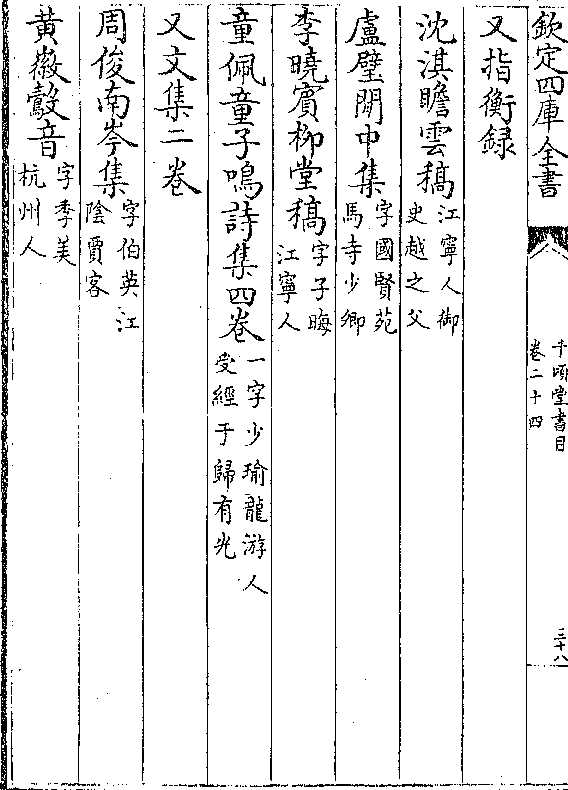 欽定四庫全書
千頃堂書目
卷二十四
三十八
又指衡録
沈淇瞻雲稿江寧人御史越之父
盧璧閒中集字國賢苑馬寺少卿
李曉賓柳堂稿字子晦江寧人
童佩童子鳴詩集四卷一字少瑜龍游人受經于歸有光
又文集二卷
周俊南岑集字伯英江陰賈客
黄徽鷇音字季美杭州人